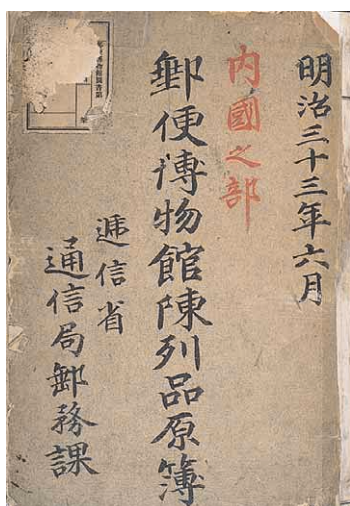 明治三十三年六月
内國之部
郵便博物館陳列品原簿
逓信省
通信局郵務課